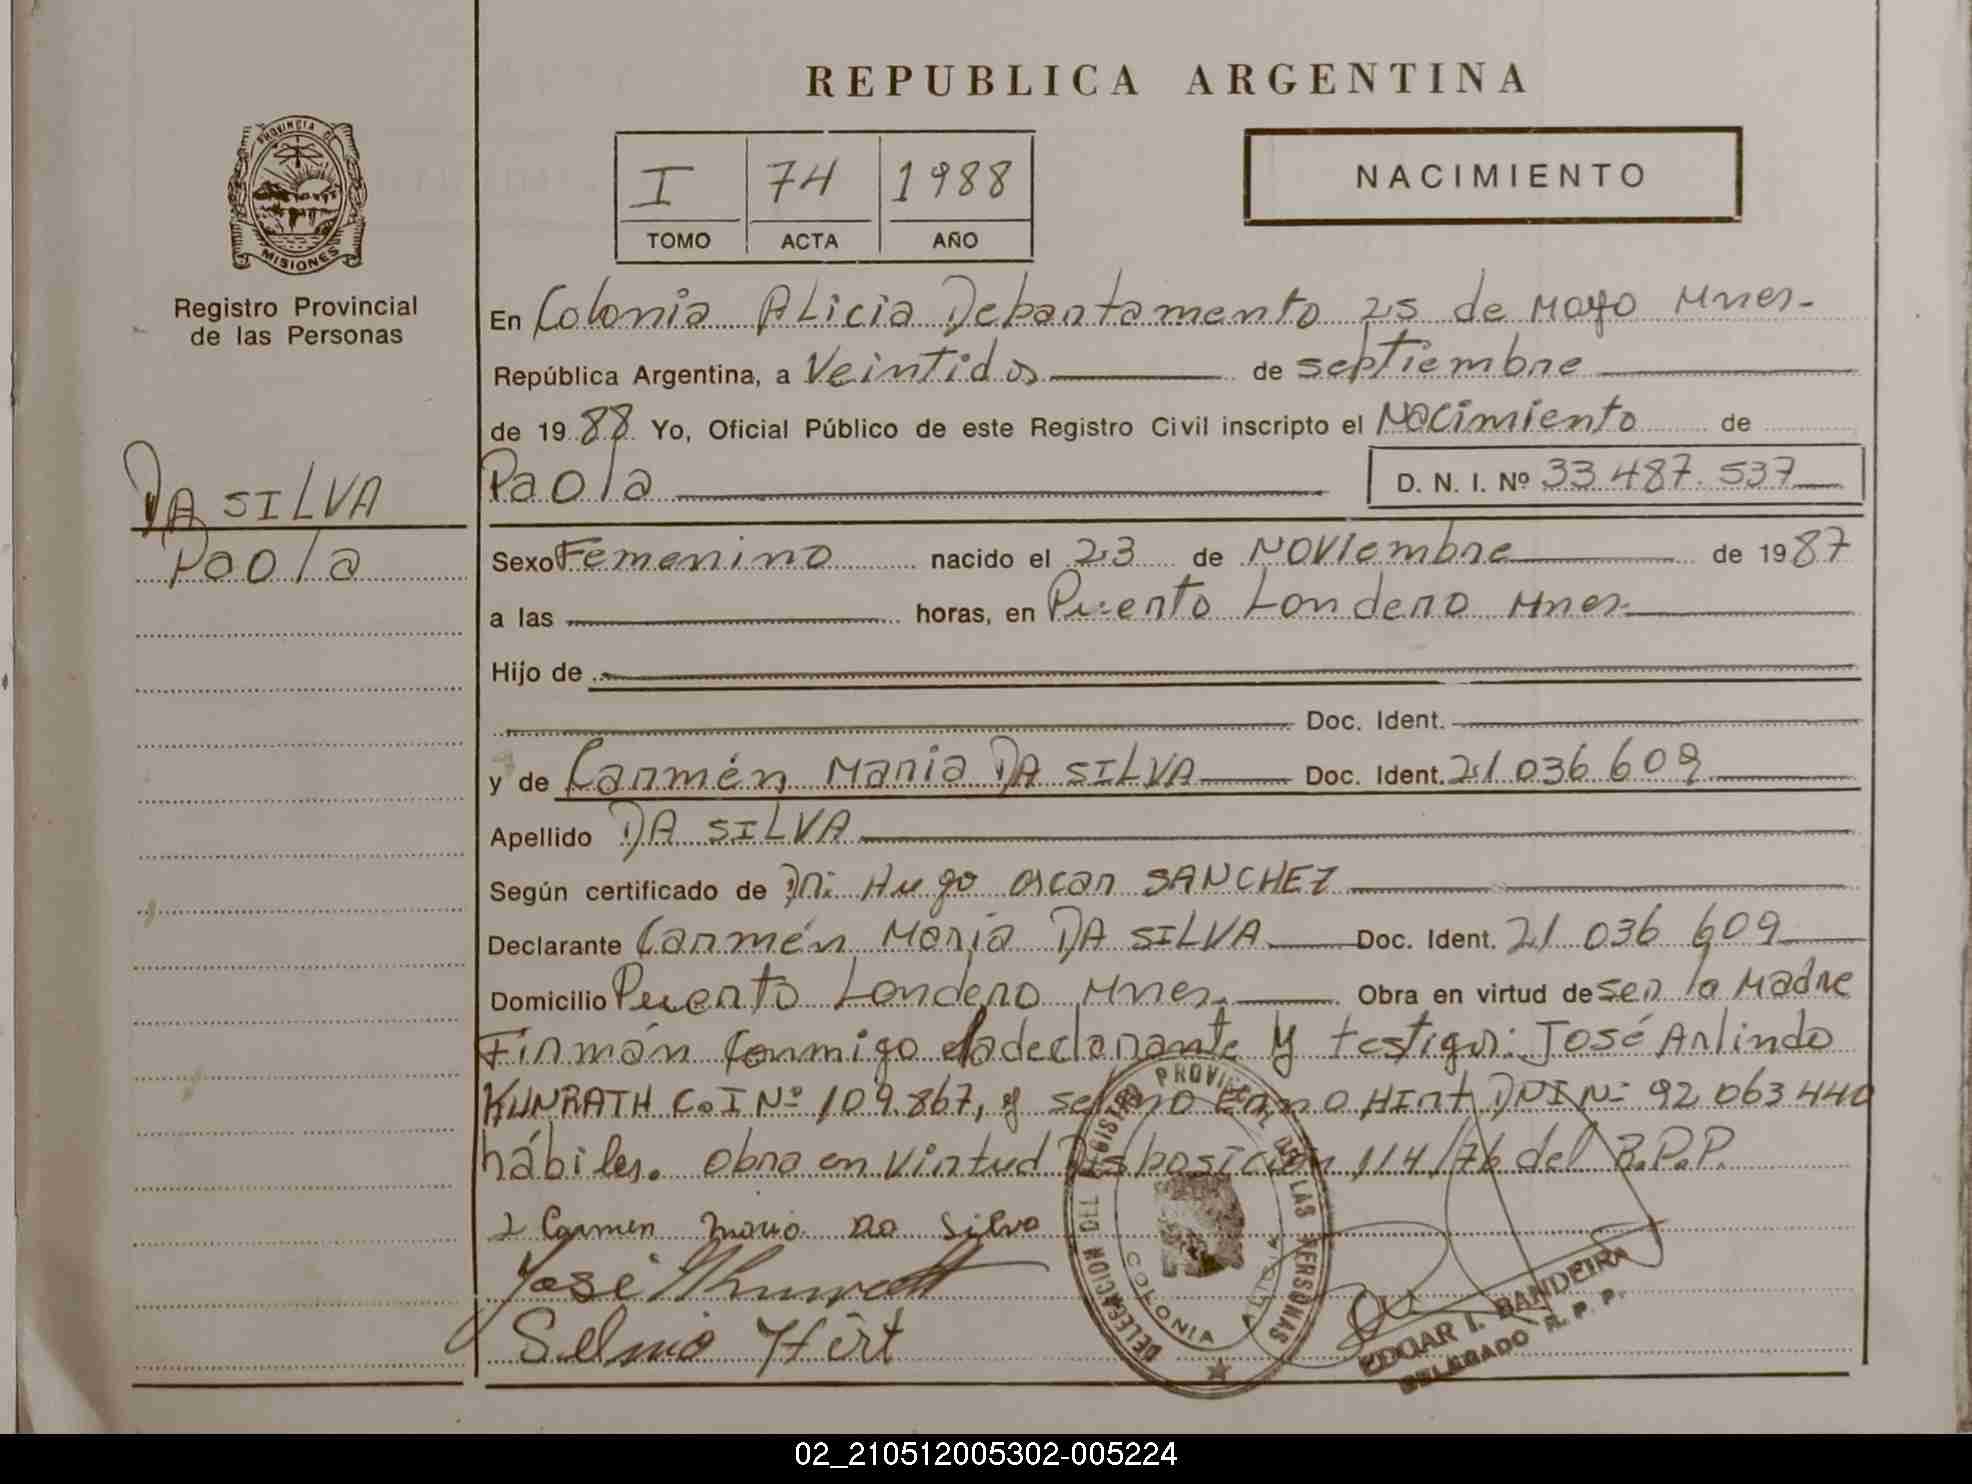 REPUBLICA ARGENTINA
PROVINCIA DE
MISIONES
Registro Provincial
de las Personas
DA SILVA
Paola
I 74 1988
TOMO ACTA AÑO
NACIMIENTO
En Colonia Alicia Departamento 25 de Mayo Mnes.-
República Argentina, a Veintidos de septiembre
de 1988 Yo, Oficial Público de este Registro Civil inscripto el Nacimiento de
Paola D. N. I. Nº 33.487.537
Sexo Femenino nacido el 23 de Noviembre de 1987
a las horas, en Puerto Londero Mnes.
Hijo de
Doc. Ident.
y de Carmén Maria DA SILVA Doc. Ident. 21 036 609
Apellido DA SILVA
Según certificado de Dr: Hugo Oscar SANCHEZ
Declarante Carmén Maria DA SILVA Doc. Ident. 21 036 609
Domicilio Puerto Londero Mnes. Obra en virtud de ser la Madre
Firmán conmigo la declarante y testigos: José Arlindo
KUNRATH C.I Nº 109.867, y Selmo Hirt DNI Nº 92 063 440
hábiles. obra en virtud Disposición 114/76 del R.P.P.
Carmen Maria Da Silva
José Kunrath
Selmio Hirt
DELEGACION DEL REGISTRO PROVINCIAL DE LAS PERSONAS
COLONIA ALICIA
EDGAR I. BANDEIRA
DELEGADO R. P. P.
02_210512005302-005224